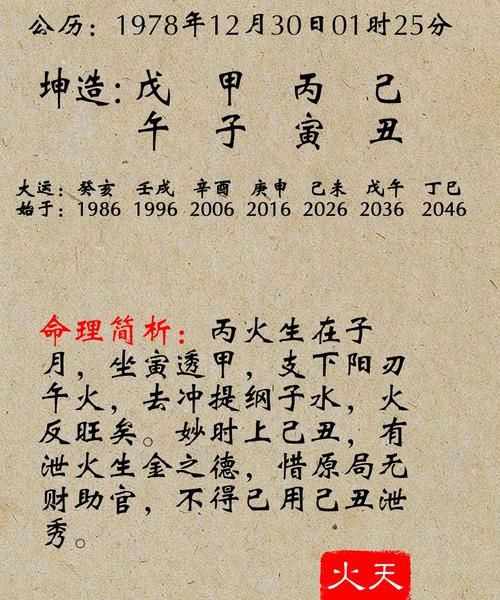 公历：1978年12月30日01时25分
坤造：戊 甲 丙 己
午 子 寅 丑
大运：癸亥 壬戌 辛酉 庚申 己未 戊午 丁巳
始于：1986 1996 2006 2016 2026 2036 2046
命理简析：丙火生在子
月，坐寅透甲，支下阳刃
午火，去冲提纲子水，火
反旺矣。妙时上己丑，有
泄火生金之德，惜原局无
财助官，不得已用己丑泄
秀。
火天